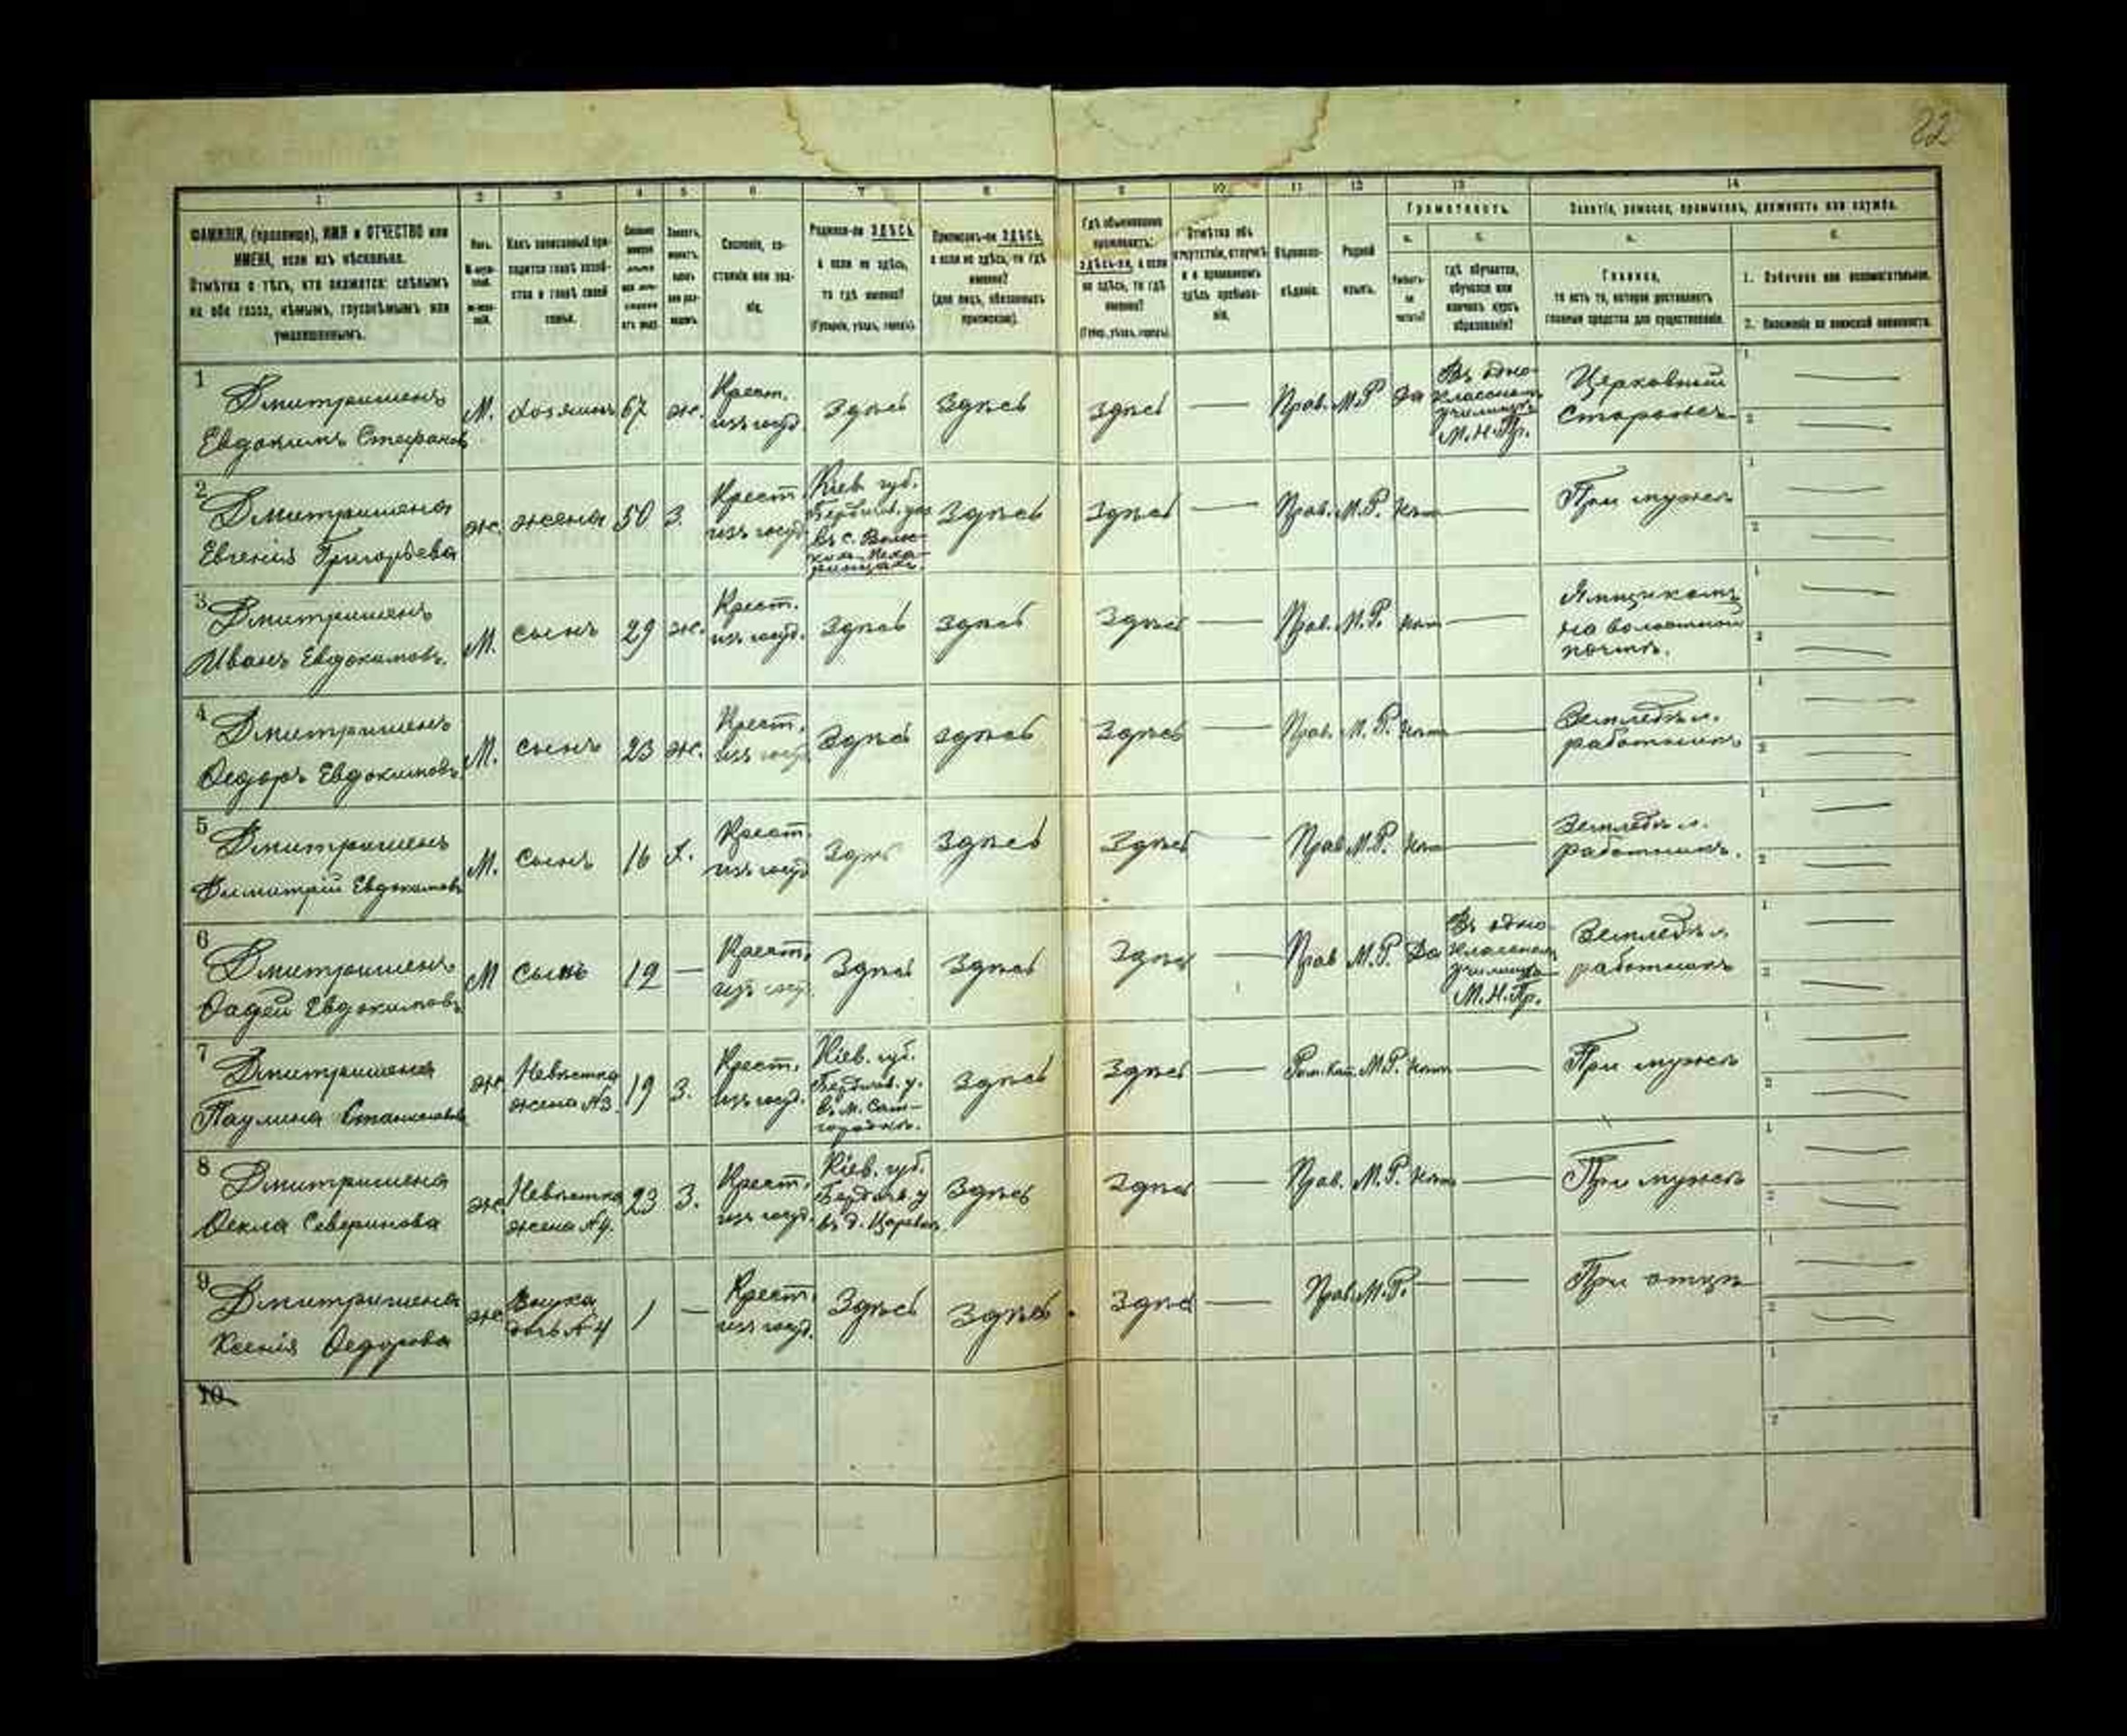 22
1 2 3 4 5 6 7 8 9 10 11 12 13 14
ФАМИЛІЯ, (прозвище), ИМЯ и ОТЧЕСТВО или
ИМЕНА, если ихъ нѣсколько.
Отмѣтка о тѣхъ, кто окажется: слѣпымъ
на оба глаза, нѣмымъ, глухонѣмымъ или
умалишеннымъ.
Полъ.
Какъ записанный при-
ходится главѣ хозяй-
ства и главѣ своей
семьи.
Сословіе, со-
стояніе или зва-
ніе.
Родился-ли ЗДѢСЬ,
а если не здѣсь,
то гдѣ именно?
(Губернія, уѣздъ, городъ).
Приписанъ-ли ЗДѢСЬ,
а если не здѣсь, то гдѣ
именно?
(для лицъ, обязанныхъ
припискою).
Гдѣ обыкновенно
проживаетъ:
здѣсь-ли, а если
не здѣсь, то гдѣ
именно?
(Губер., уѣздъ, городъ).
Отмѣтка объ
отсутствіи, отлучкѣ
и о временномъ
здѣсь пребыва-
ніи.
Вѣроиспо-
вѣданіе.
Родной
языкъ.
Грамотность.
а. б.
Умѣетъ-
ли
читать?
гдѣ обучается,
обучался или
кончилъ курсъ
образованія?
Занятіе, ремесло, промыселъ, должность или служба.
а. б.
Главное,
то есть то, которое доставляетъ
главныя средства для существованія.
1. Побочное или вспомогательное.
2. Положеніе по воинской повинности.
1
Дмитришенъ
Евдокимъ Стефановъ
М. хозяинъ 67 ж.
Крест.
изъ госуд.
Здѣсь Здѣсь здѣсь — Прав. М.Р. Да
Въ одно-
классномъ
училищѣ
М.Н.Пр.
Церковный
сторожъ
2
Дмитришена
Евгенія Григорьева
ж. жена 50 З.
Крест.
изъ госуд.
Кіев. губ.
Бердичев. уѣз
въ с.
Здѣсь Здѣсь — Прав. М.Р. Нѣтъ —
При мужѣ
3
Дмитришенъ
Иванъ Евдокимовъ.
М. сынъ 29 ж.
Крест.
изъ госуд.
Здѣсь Здѣсь Здѣсь — Прав. М.Р. Нѣтъ —
Ямщикомъ
на волостной
почтѣ.
4
Дмитришенъ
Ѳедоръ Евдокимовъ
М. сынъ 23 ж.
Крест.
изъ госуд
Здѣсь здѣсь Здѣсь — Прав. М.Р. Нѣтъ —
Земледѣл.
работникъ
5
Дмитришенъ
Димитрій Евдокимовъ
М. сынъ 16 х.
Крест.
изъ госуд
Здѣсь Здѣсь Здѣсь — Прав М.Р. Нѣтъ —
Земледѣл.
работникъ.
6
Дмитришенъ
Ѳадей Евдокимовъ
М сынъ 12 —
Крест.
изъ госуд.
Здѣсь Здѣсь Здѣсь — Прав М.Р. Да
Въ одно-
классном
училищѣ
М.Н.Пр.
Земледѣл
работникъ
7
Дмитришена
Паулина Станиславова
ж Невѣстка
жена №3. 19 З.
Крест.
изъ госуд.
Кіев. губ.
Бердичев. у.
въ м. Сам-
городкѣ.
Здѣсь Здѣсь — Рим. Кат. М.Р. Нѣтъ —
При мужѣ
8
Дмитришена
Ѳекла Северинова
ж. Невѣстка
жена №4. 23 З.
Крест.
изъ госуд.
Кіев. губ.
Бердичев. у
въ д.
Здѣсь Здѣсь — Прав. М.Р. Нѣтъ —
При мужѣ
9
Дмитришена
Ксенія Ѳедорова
ж Внука
дочь №4 1 —
Крест.
изъ госуд.
Здѣсь Здѣсь Здѣсь — Прав. М.Р. — —
При отцѣ
10